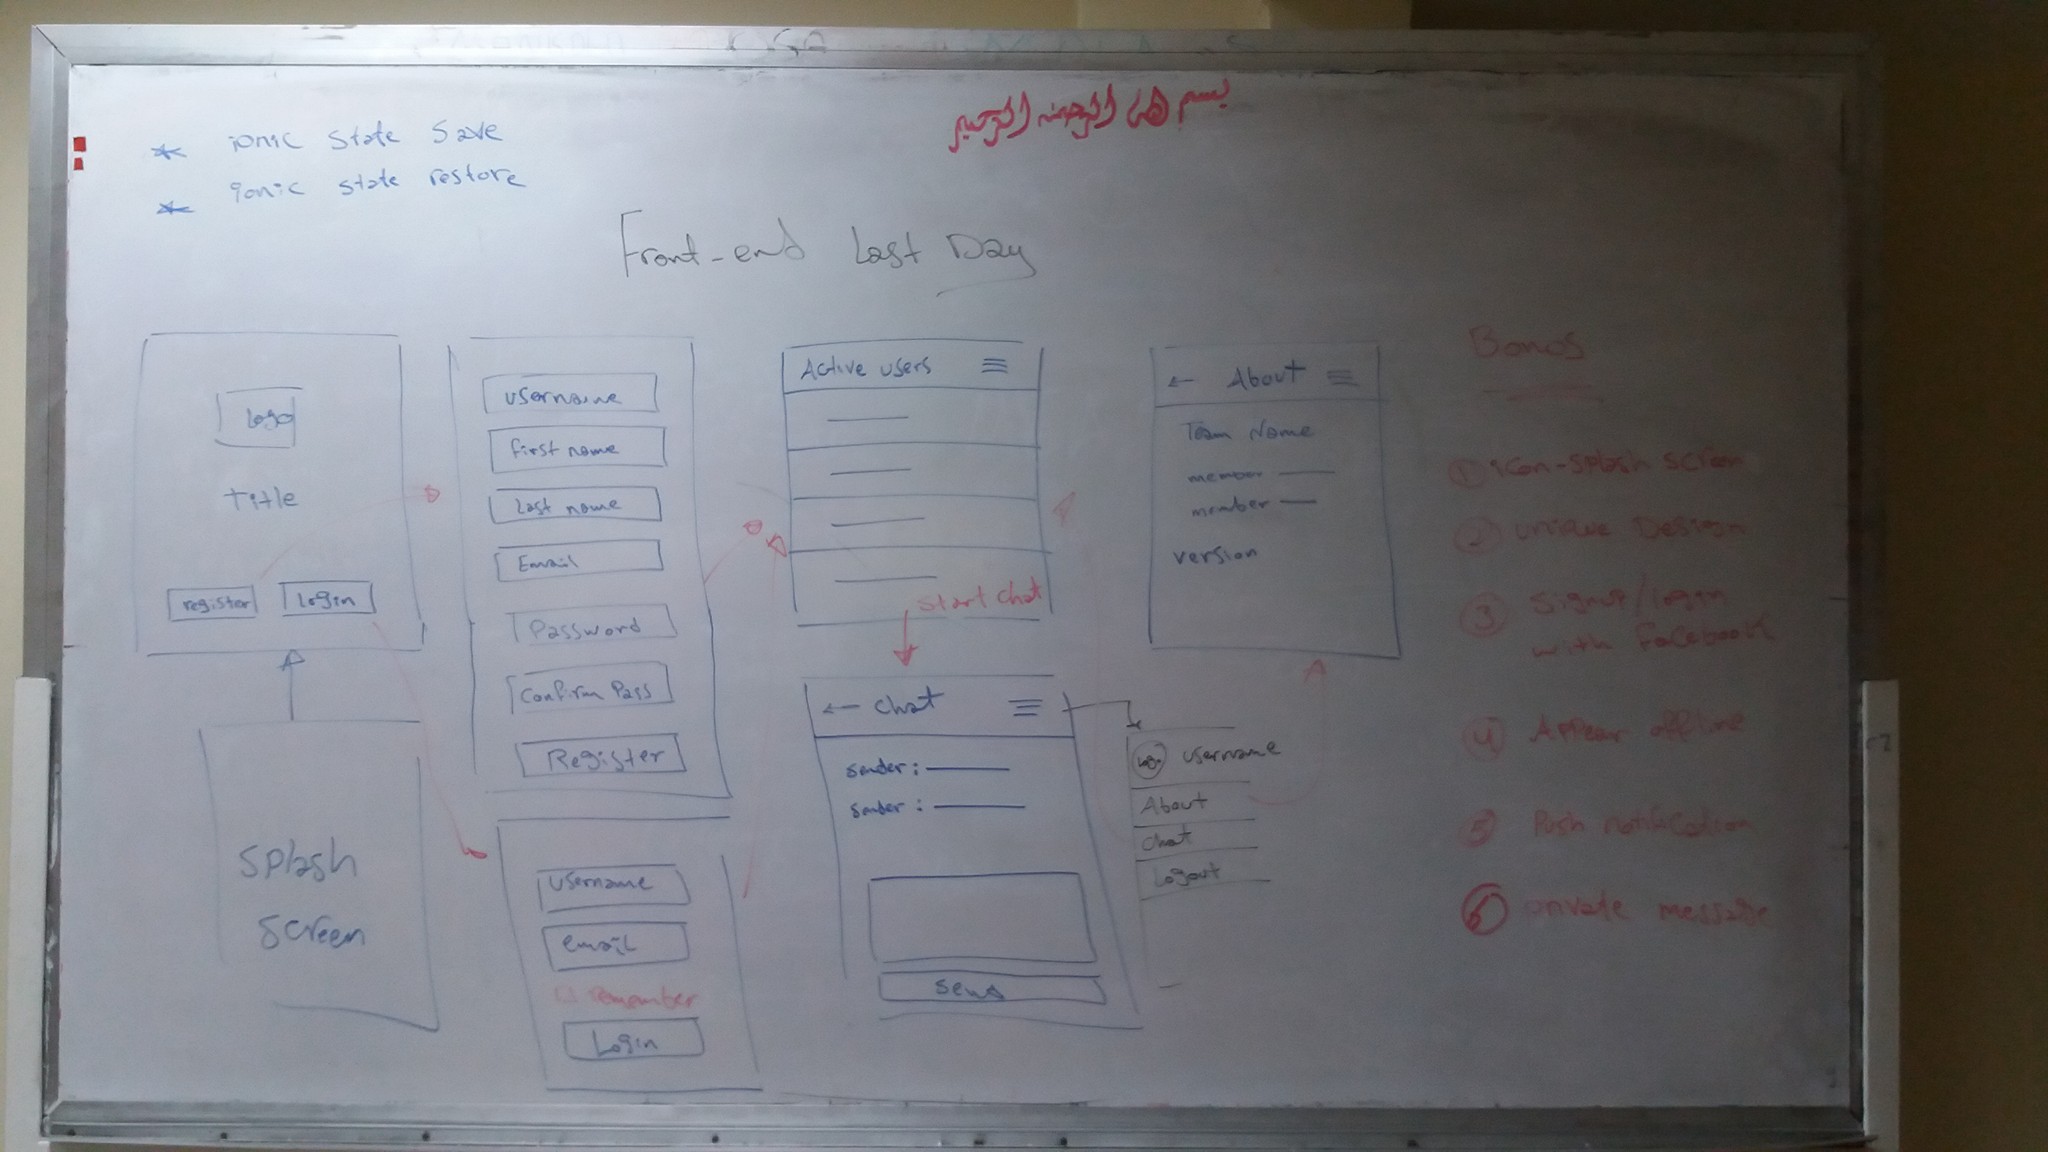 بسم الله الرحمن الرحيم
* ionic state save
* ionic state restore
Front-end Last Day
Logo
Title
register
Login
Splash
Screen
username
first name
Last name
Email
Password
Confirm Pass
Register
username
email
remember
Login
Active users
Start chat
← chat
sender:
sender:
Send
Logo username
About
chat
Logout
← About
Team Name
member
member
version
Bonos
1 icon-splash screen
2 unique Design
3 Signup/login
with facebook
4 Appear offline
5 Push notification
6 private message